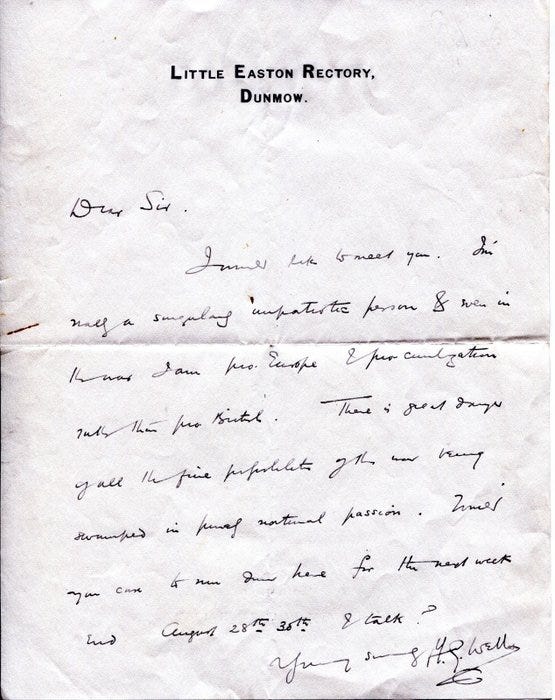 LITTLE EASTON RECTORY,
DUNMOW.
Dear Sir.
I would like to meet you. I'm
really a singularly unpatriotic person & even in
the war I am pro-Europe & pro-civilization
rather than pro British. There is great danger
of all the fine possibilities of this war being
swamped in purely national passion. Would
you care to run down here for the next week
End August 28th 30th & talk?
Yours sincerely H.G. Wells